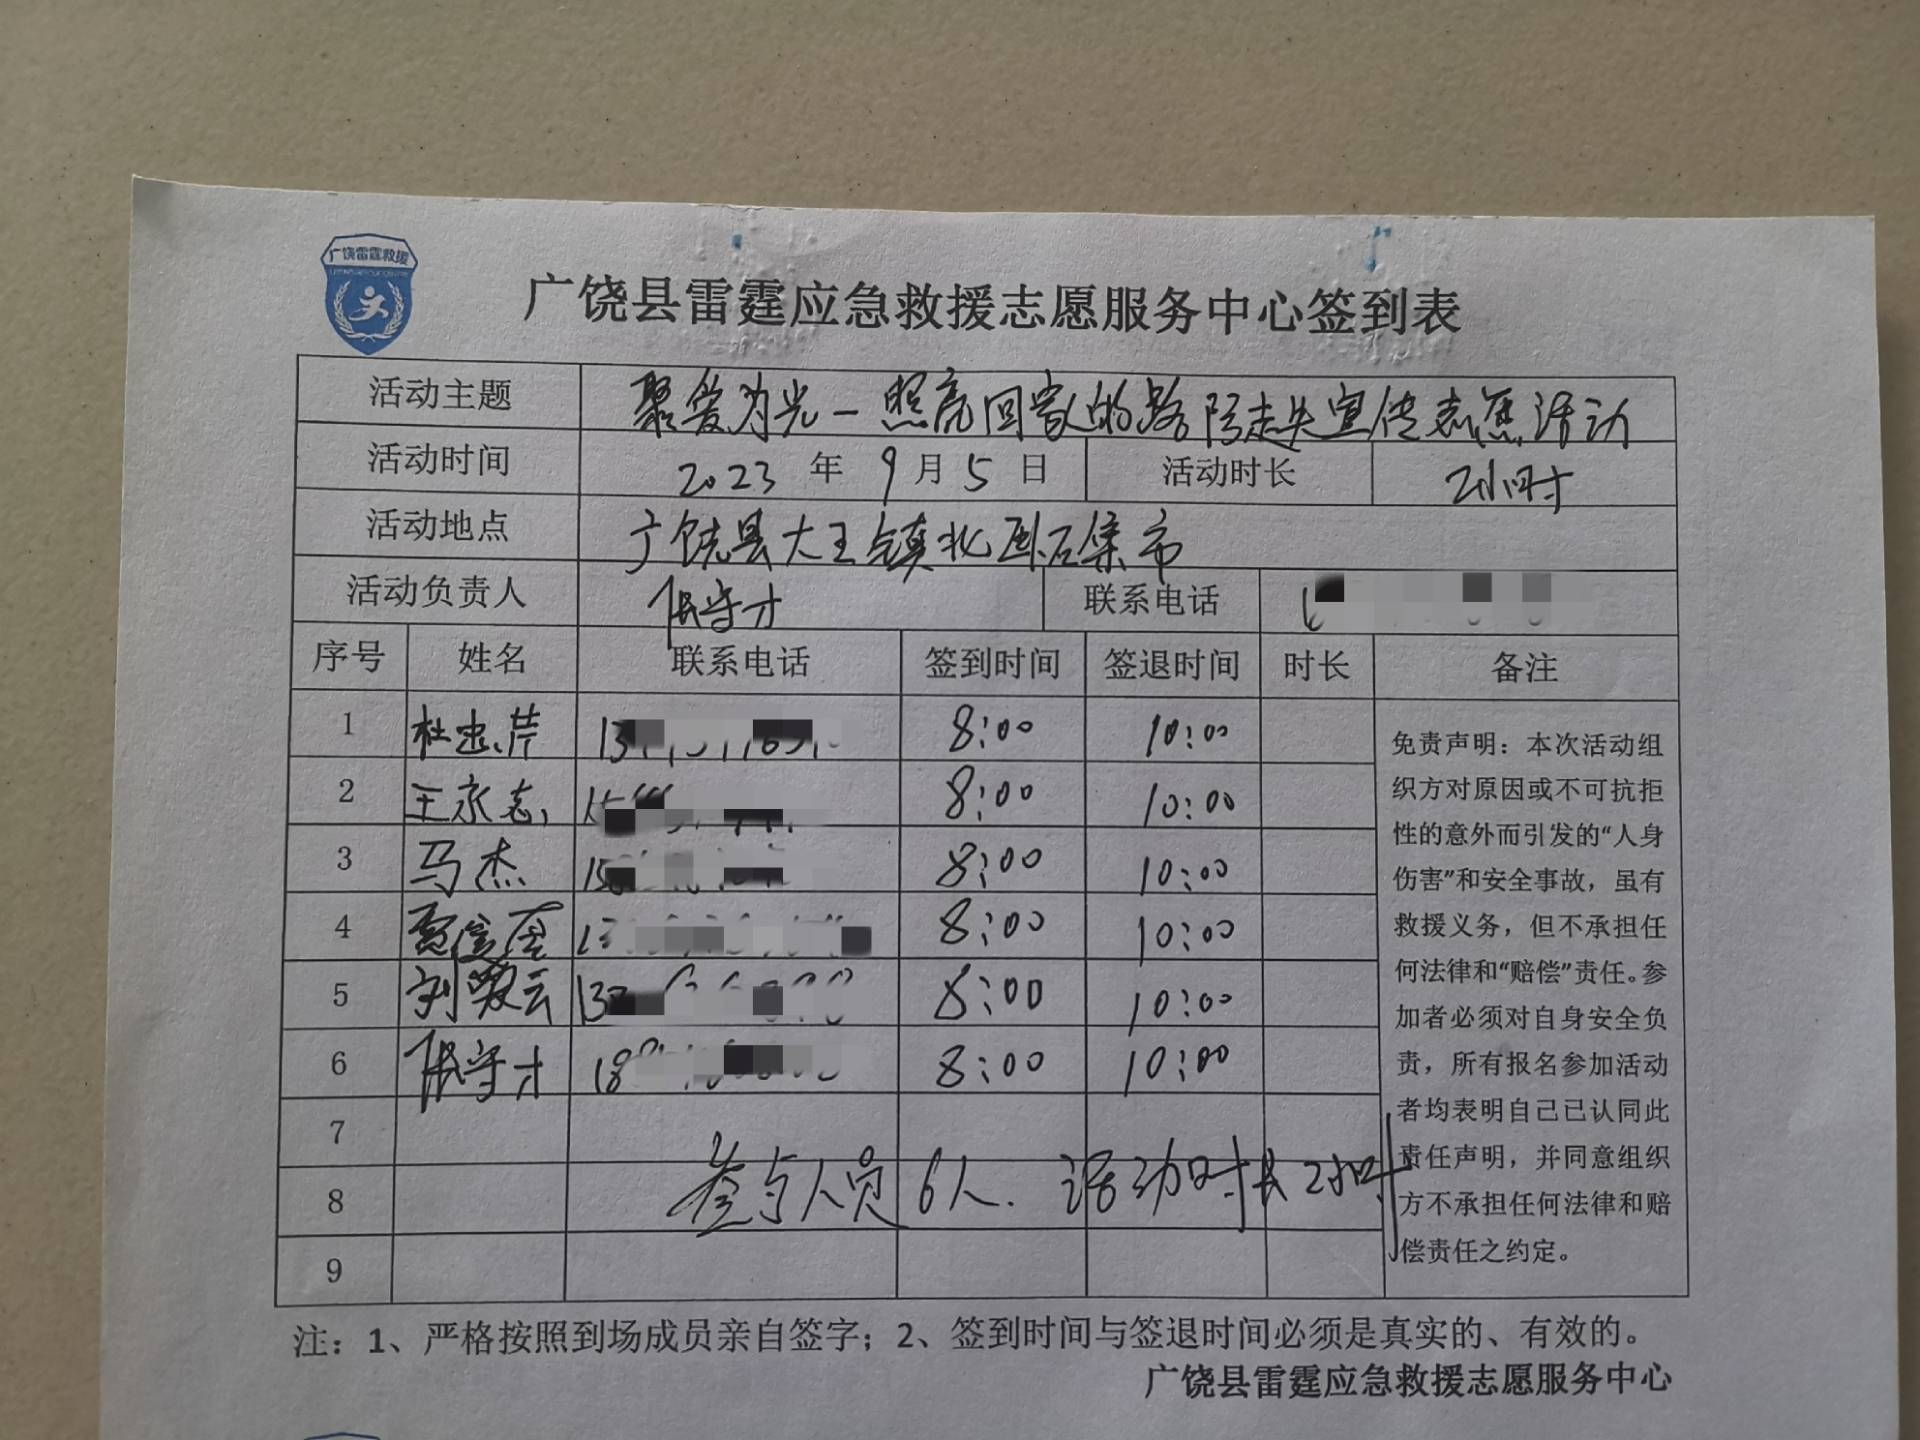 广饶雷霆救援
广饶县雷霆应急救援志愿服务中心签到表
活动主题 聚爱为光一照亮回家的路防走失宣传志愿活动
活动时间 2023 年 9 月 5 日 活动时长 2小时
活动地点 广饶县大王镇北卧石集市
活动负责人 张守才 联系电话
序号 姓名 联系电话 签到时间 签退时间 时长 备注
1 杜忠芹 8:00 10:00
2 王永志 8:00 10:00
3 马杰 8:00 10:00
4 8:00 10:00
5 刘云 8:00 10:00
6 张守才 8:00 10:00
7
8
9
参与人员6人. 活动时长2小时
免责声明：本次活动组
织方对原因或不可抗拒
性的意外而引发的“人身
伤害”和安全事故，虽有
救援义务，但不承担任
何法律和“赔偿”责任。参
加者必须对自身安全负
责，所有报名参加活动
者均表明自己已认同此
责任声明，并同意组织
方不承担任何法律和赔
偿责任之约定。
注：1、严格按照到场成员亲自签字；2、签到时间与签退时间必须是真实的、有效的。
广饶县雷霆应急救援志愿服务中心